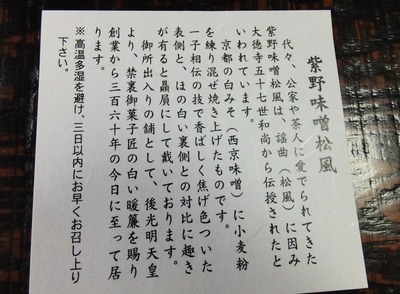 紫野味噌松風
代々、公家や茶人に愛でられてきた
紫野味噌松風は、謡曲（松風）に因み
大徳寺五十七世和尚から伝授されたと
いわれています。
京都の白みそ（西京味噌）に小麦粉
を練り混ぜ焼き上げたものです。
一子相伝の技で香ばしく焦げ色ついた
表側と、ほの白い裏側との対比に趣き
が有ると贔屓にして戴いております。
御所出入りの舗として、後光明天皇
より、禁裏御菓子匠の白い暖簾を賜り
創業から三百六十年の今日に至って居
ります。
※高温多湿を避け、三日以内にお早くお召し上り
下さい。